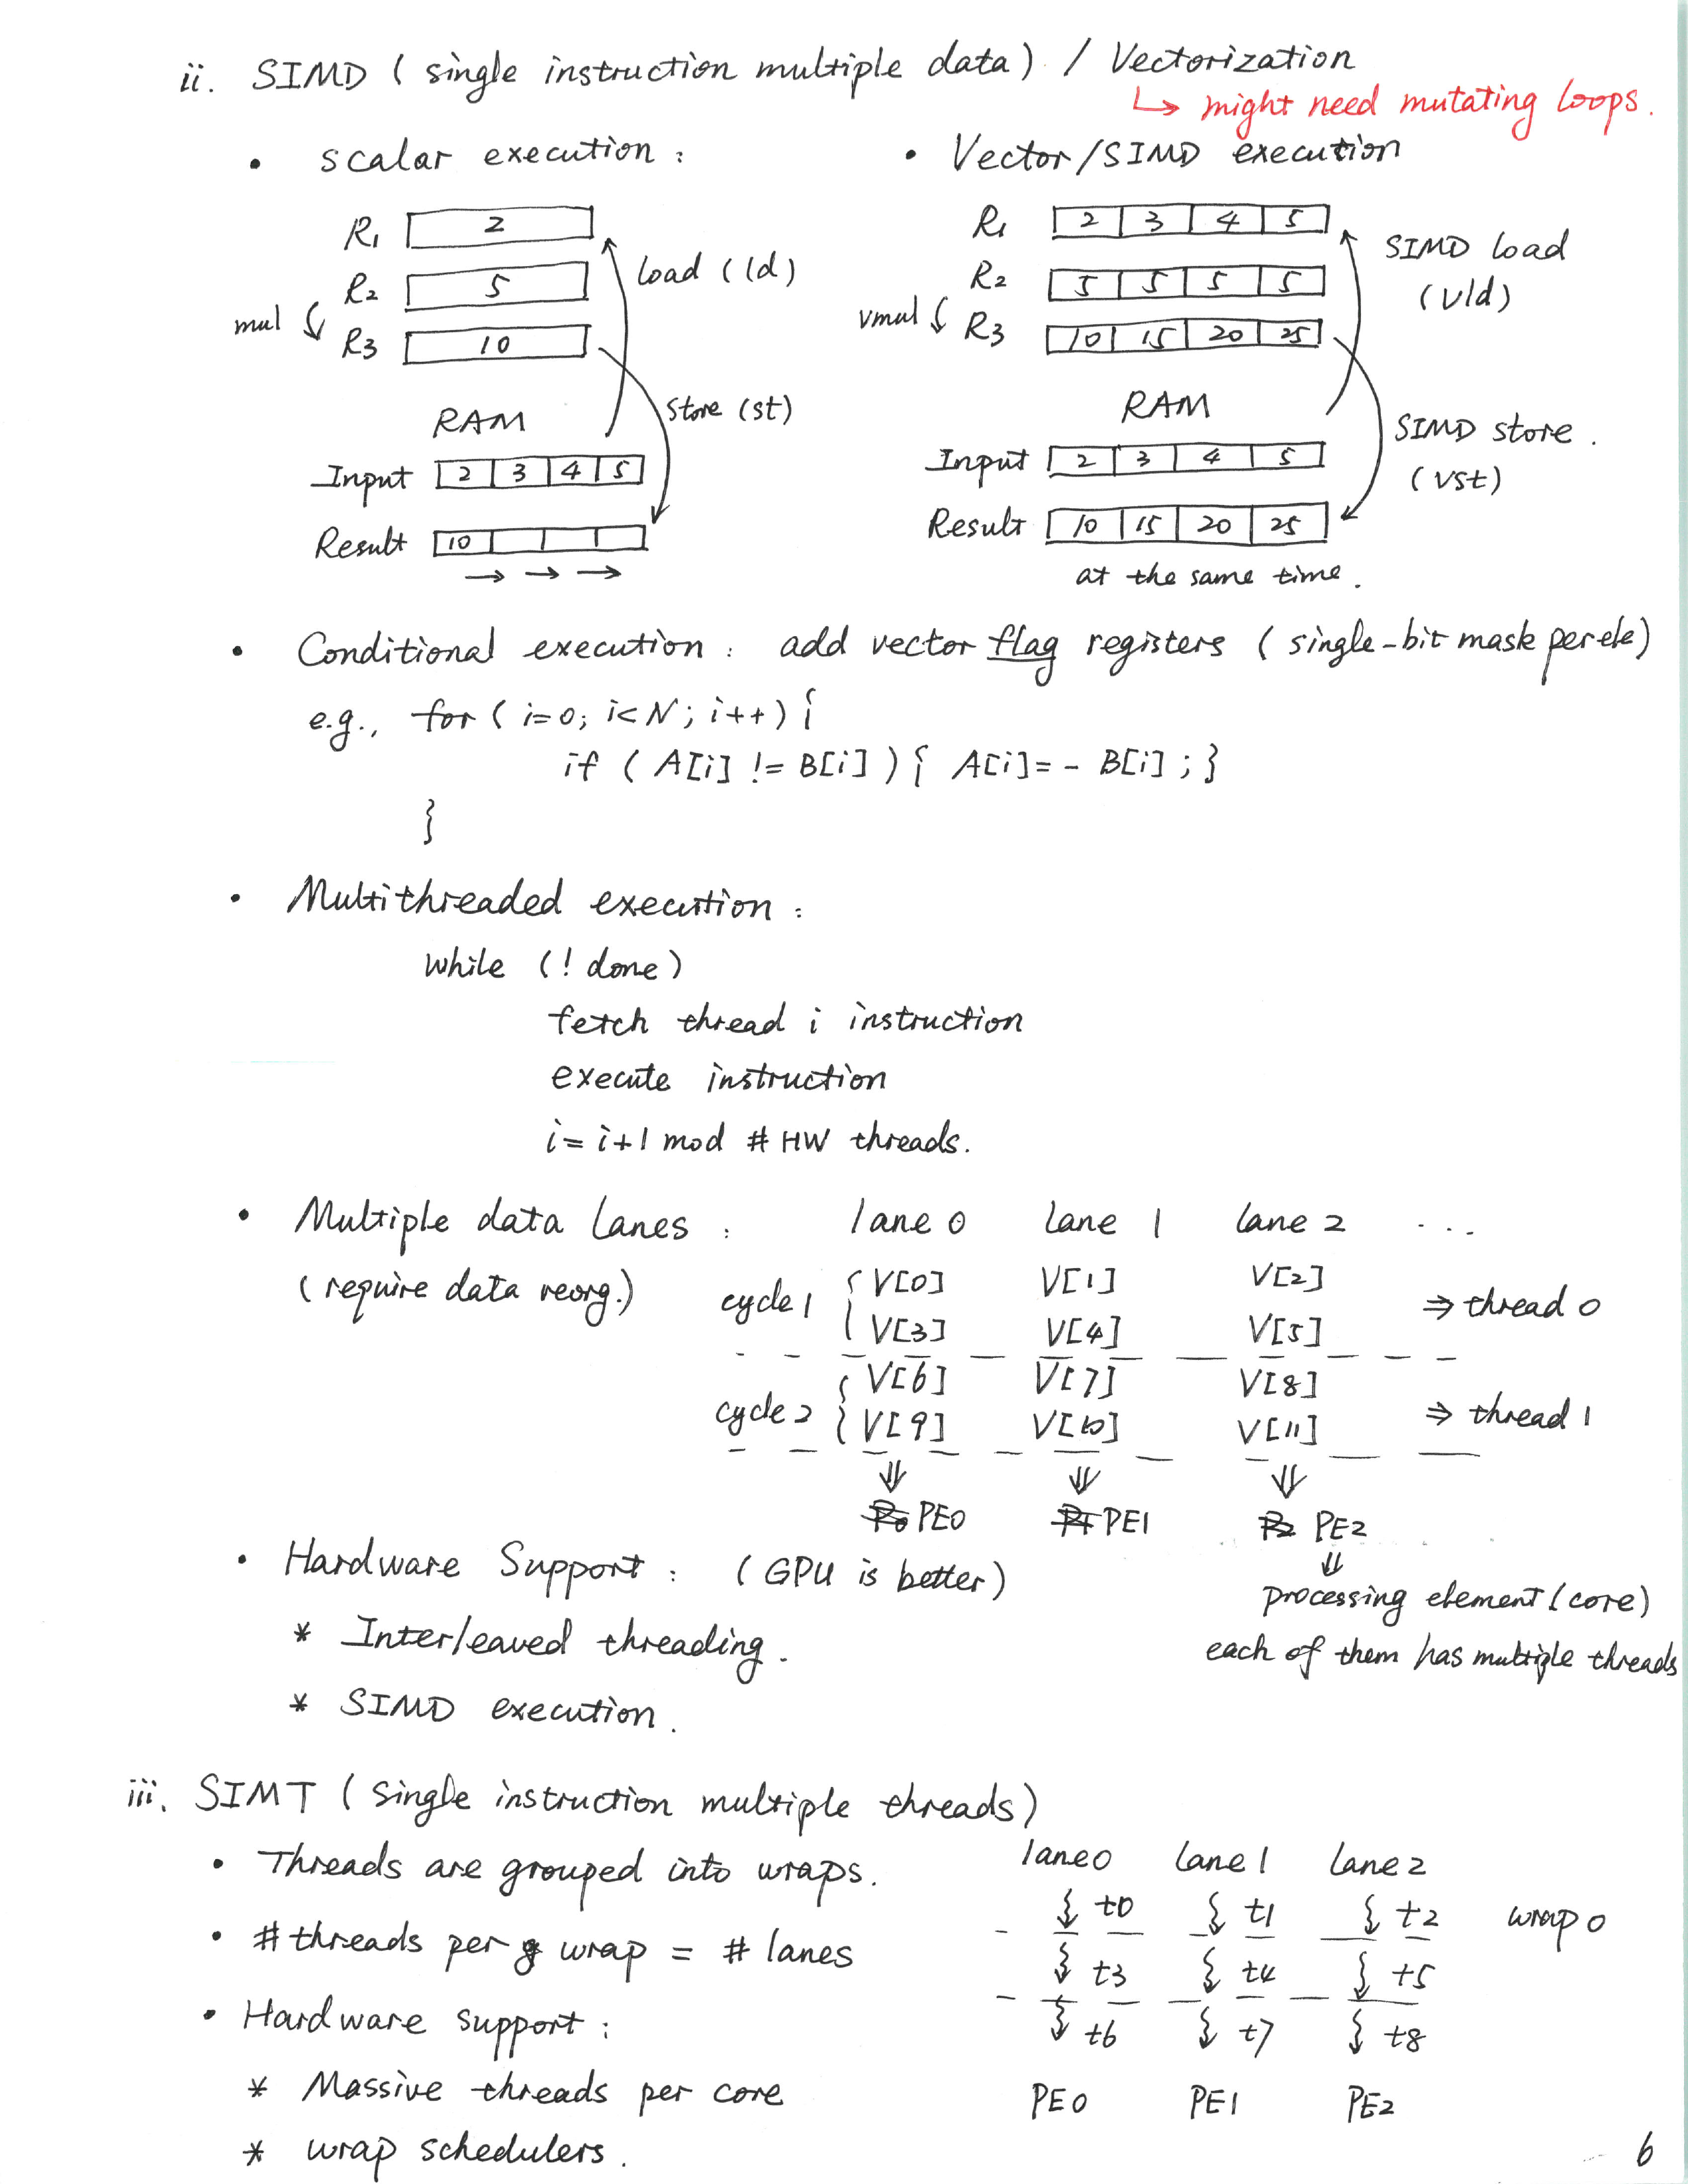 ii. SIMD ( single instruction multiple data) / Vectorization
↳ might need mutating loops.
• scalar execution :
R1 2
R2 5
mul
R3 10
load (ld)
store (st)
RAM
Input 2 3 4 5
Result 10
→ → →
• Vector/SIMD execution
R1 2 3 4 5
R2 5 5 5 5
vmul
R3 10 15 20 25
SIMD load
(vld)
RAM
SIMD store.
(vst)
Input 2 3 4 5
Result 10 15 20 25
at the same time.
• Conditional execution : add vector flag registers ( single-bit mask per ele)
e.g., for ( i=0; i<N; i++) {
if ( A[i] != B[i] ) { A[i]= - B[i] ; }
}
• Multithreaded execution :
while (! done)
fetch thread i instruction
execute instruction
i= i+1 mod # HW threads.
• Multiple data lanes : lane 0 lane 1 lane 2 ...
(require data reorg.)
cycle 1 { V[0] V[1] V[2] ⇒ thread 0
V[3] V[4] V[5]
cycle 2 { V[6] V[7] V[8] ⇒ thread 1
V[9] V[10] V[11]
⇓ ⇓ ⇓
PE0 PE1 PE2
⇓
processing element (core)
each of them has multiple threads
• Hardware Support : (GPU is better)
* Interleaved threading.
* SIMD execution.
iii. SIMT ( Single instruction multiple threads)
• Threads are grouped into wraps.
• # threads per wrap = # lanes
• Hardware support :
* Massive threads per core
* wrap schedulers.
lane0 lane 1 lane 2
t0 t1 t2 wrap 0
t3 t4 t5
t6 t7 t8
PE0 PE1 PE2
6